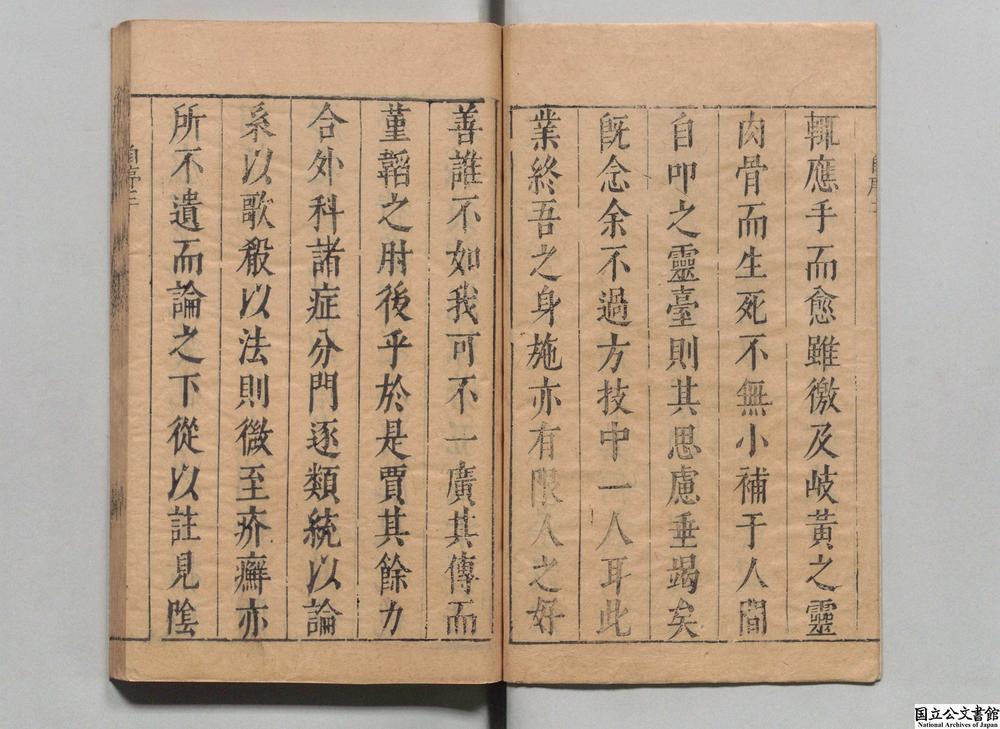 輒應手而愈雖徼及岐黃之靈
肉骨而生死不無小補于人間
自叩之靈臺則其思慮垂竭矣
旣念余不過方技中一人耳此
業終吾之身施亦有限人之好
善誰不如我可不一廣其傳而
堇韜之肘後乎於是賈其餘力
合外科諸症分門逐類統以論
系以歌殽以法則微至疥癬亦
所不遺而論之下從以註見陰
自序三
国立公文書館
National Archives of Japan